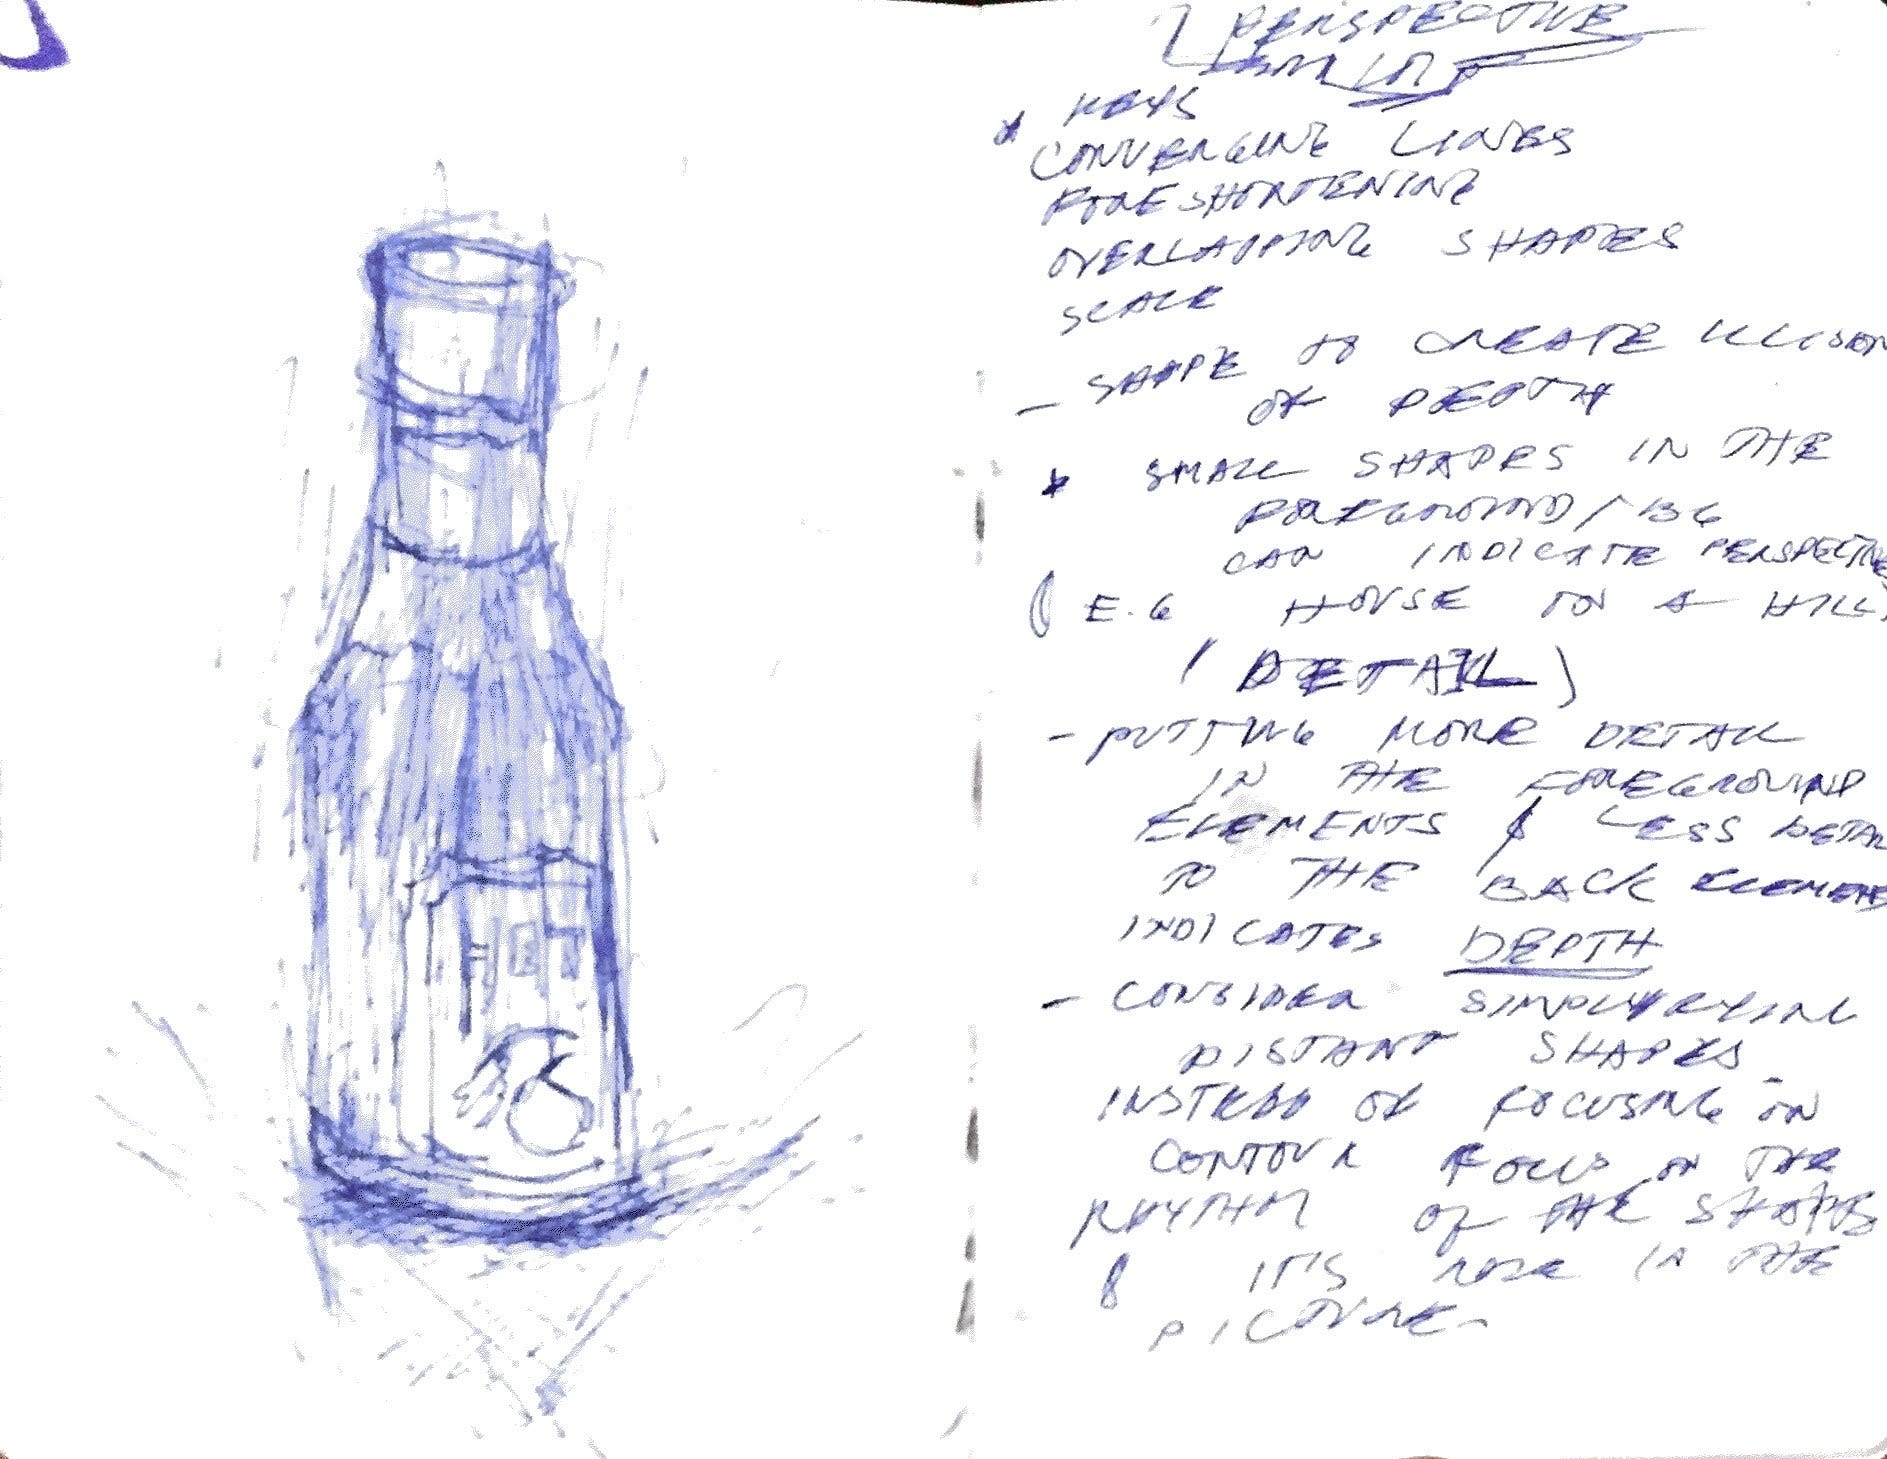 PERSPECTIVE
KEYS
CONVERGING LINES
FORESHORTENING
OVERLAPPING SHAPES
SCALE
- SHAPE TO CREATE ILLUSION
OF DEPTH
* SMALL SHAPES IN THE
FOREGROUND / BG
CAN INDICATE PERSPECTIVE
( E.G HOUSE ON A HILL)
( DETAIL )
- PUTTING MORE DETAIL
IN THE FOREGROUND
ELEMENTS & LESS DETAIL
TO THE BACK ELEMENTS
INDICATES DEPTH
- CONSIDER SIMPLIFYING
DISTANT SHAPES
INSTEAD OF FOCUSING ON
CONTOUR FOCUS ON THE
RHYTHM OF THE SHAPES
& IT'S ROLE IN THE
PICTURE-